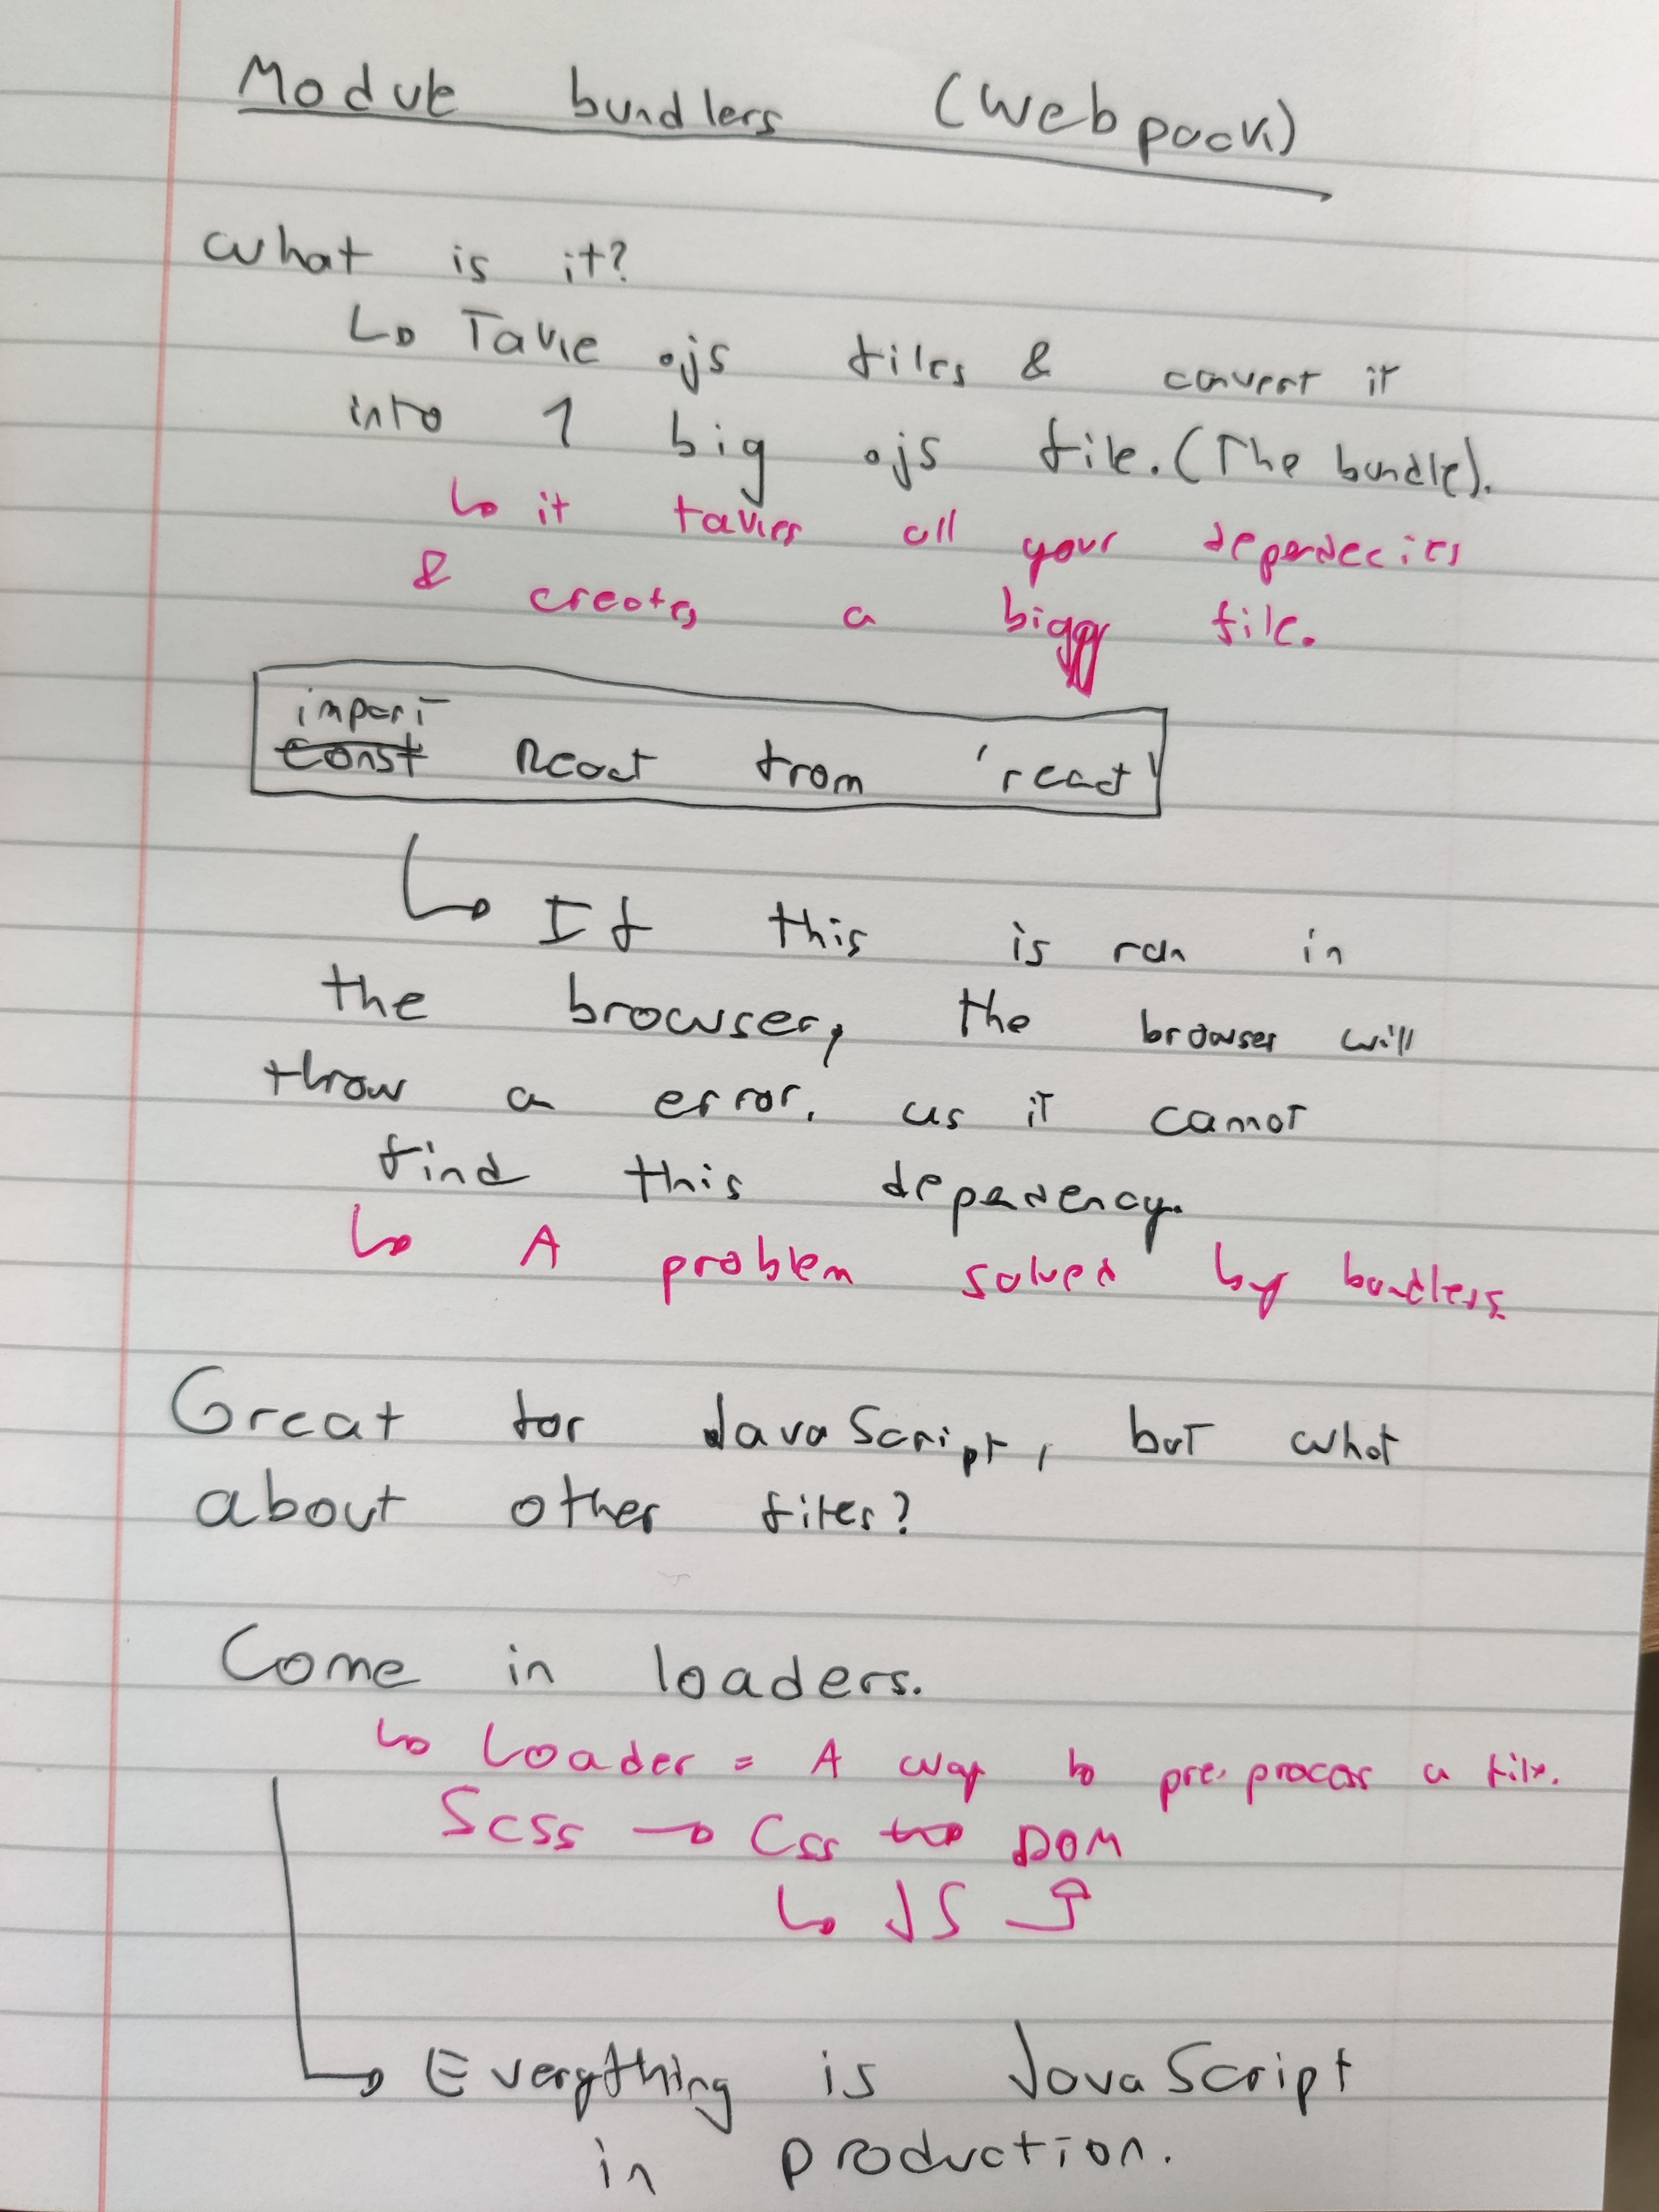 Module bundlers (Webpack)
What is it?
↳ Take .js files & convert it
into 1 big .js file. (The bundle).
↳ it takes all your dependecies
& creates a bigg file.
import
~~const~~ React from 'react'
↳ If this is ran in
the browser, the browser will
throw a error. as it cannot
find this dependency.
↳ A problem solved by bundlers
Great for JavaScript, but what
about other files?
Come in loaders.
↳ Loader = A way to pre-process a file.
Scss → Css → DOM
↳ JS ↑
↳ Everything is JavaScript
in production.